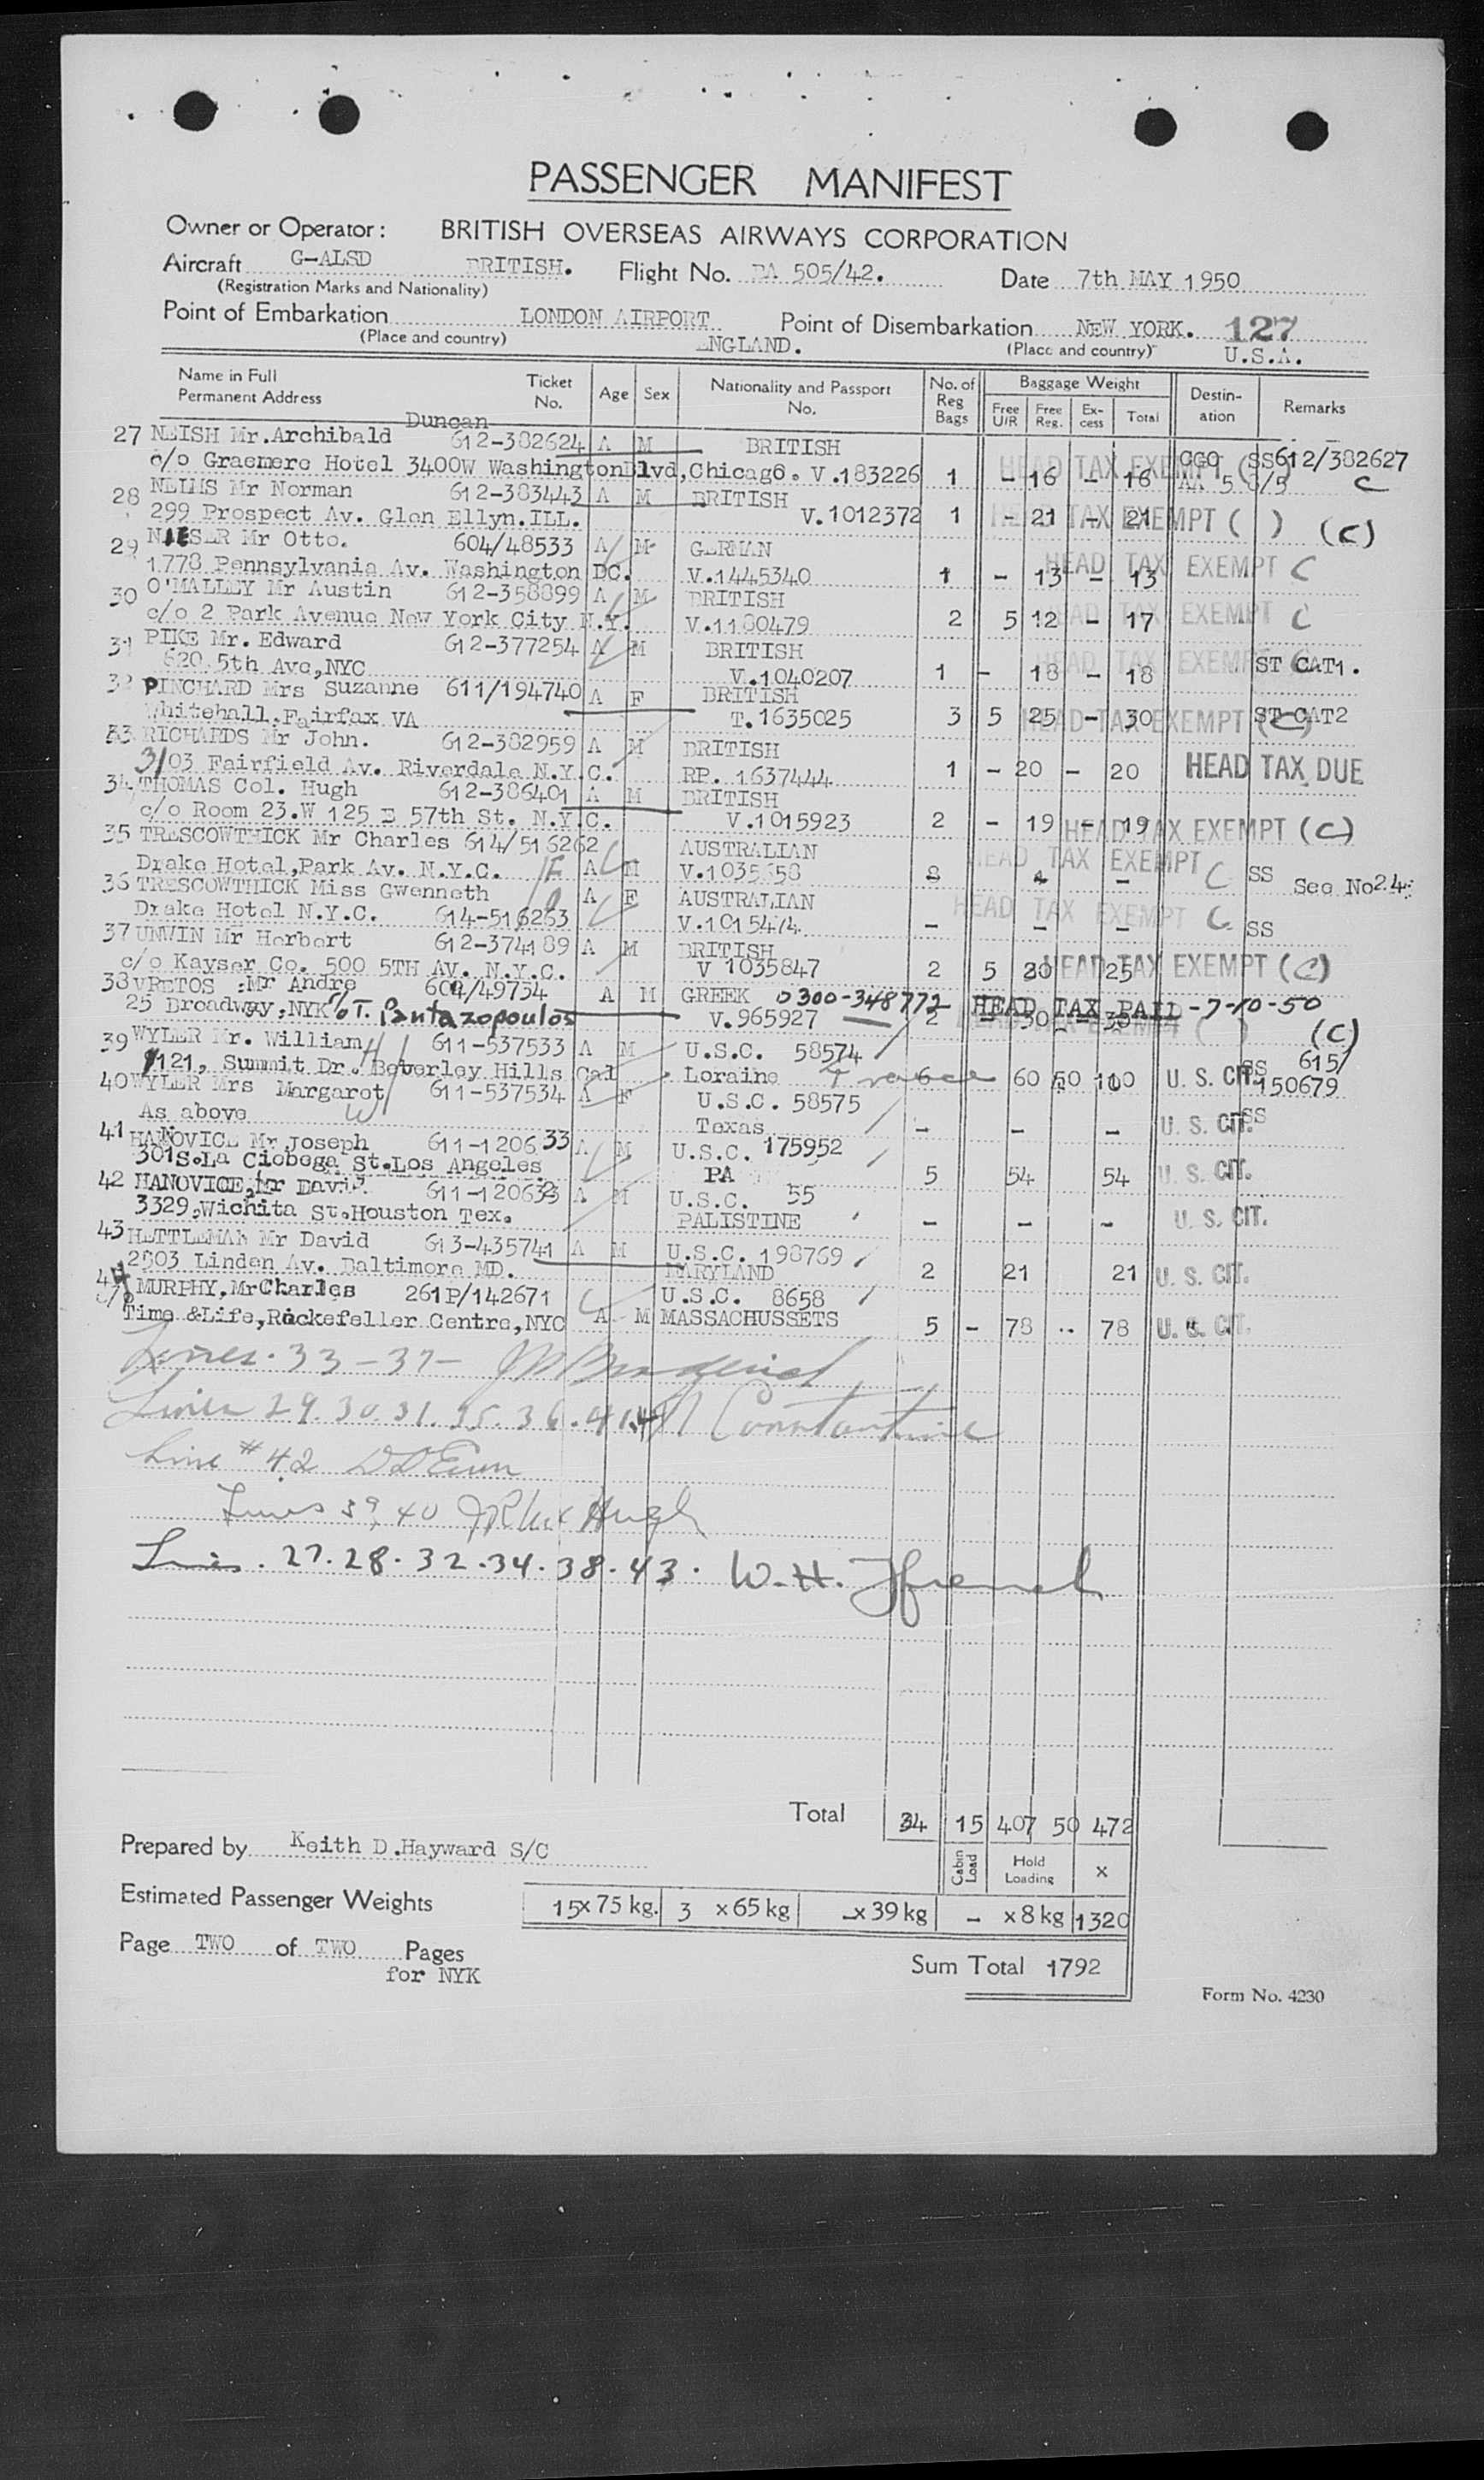 PASSENGER MANIFEST
Owner or Operator: BRITISH OVERSEAS AIRWAYS CORPORATION
Aircraft G-ALSD BRITISH. Flight No. BA 505/42. Date 7th MAY 1950
(Registration Marks and Nationality)
Point of Embarkation LONDON AIRPORT Point of Disembarkation NEW YORK. 127
(Place and country) ENGLAND. (Place and country) U.S.A.
Name in Full Ticket Age Sex Nationality and Passport No. of Baggage Weight Destin- Remarks
Permanent Address No. No. Reg Bags Free U/R Free Reg. Ex-cess Total ation
Duncan
27 NEISH Mr.Archibald 612-382624 A M BRITISH
c/o Graemere Hotel 3400W WashingtonBlvd,Chicago. V.183226 1 - 16 - 16 HEAD TAX EXEMPT CGO SS612/382627
AA 5 8/5 C
28 Mr Norman 612-383443 A M BRITISH
299 Prospect Av. Glen Ellyn.ILL. V.1012372 1 - 21 - 21 HEAD TAX EXEMPT ( ) (C)
29 NIESER Mr Otto. 604/48533 A M GERMAN
1778 Pennsylvania Av. Washington DC. V.1445340 1 - 13 - 13 HEAD TAX EXEMPT C
30 O'MALLEY Mr Austin 612-358899 A M BRITISH
c/o 2 Park Avenue New York City N.Y. V.1180479 2 5 12 - 17 HEAD TAX EXEMPT C
31 PIKE Mr. Edward 612-377254 A M BRITISH
620 5th Ave,NYC V.1040207 1 - 18 - 18 HEAD TAX EXEMPT ST CAT1.
32 PINCHARD Mrs Suzanne 611/194740 A F BRITISH
Whitehall.Fairfax VA T.1635025 3 5 25 - 30 HEAD TAX EXEMPT (C) ST CAT2
33 RICHARDS Mr John. 612-382959 A M BRITISH
3103 Fairfield Av. Riverdale N.Y.C. RP. 1637444 1 - 20 - 20 HEAD TAX DUE
34 THOMAS Col. Hugh 612-386401 A M BRITISH
c/o Room 23.W 125 E 57th St. N.Y.C. V.1015923 2 - 19 - 19 HEAD TAX EXEMPT (C)
35 TRESCOWTHICK Mr Charles 614/516262 AUSTRALIAN
Drake Hotel,Park Av. N.Y.C. A M V.1035658 - HEAD TAX EXEMPT C SS See No24
36 TRESCOWTHICK Miss Gwenneth A F AUSTRALIAN
Drake Hotel N.Y.C. 614-516263 V.1015474 - - - HEAD TAX EXEMPT C SS
37 UNWIN Mr Herbert 612-374189 A M BRITISH
c/o Kayser Co. 500 5TH AV. N.Y.C. V 1035847 2 5 20 25 HEAD TAX EXEMPT (C)
38 VRETOS :Mr Andre 604/49754 A M GREEK 0300-348772 HEAD TAX PAID -7-10-50
25 Broadway,NYK c/o T. Pantazopoulos V.965927 2 - 30 - 30 (C)
39 WYLER Mr. William 611-537533 A M U.S.C. 58574
1121, Summit Dr. Beverley Hills Cal Loraine France 6 60 50 110 U. S. CIT. SS 615/
150679
40 WYLER Mrs Margaret 611-537534 A F U.S.C. 58575
As above Texas - - - U. S. CIT. SS
41 HANOVICE Mr Joseph 611-120633 A M U.S.C. 175952
301S.La Ciobega St.Los Angeles PA 5 54 54 U. S. CIT.
42 HANOVICE,Mr David 611-120632 A M U.S.C. 55
3329,Wichita St.Houston Tex. PALISTINE - - - U. S. CIT.
43 HETTLEMAN Mr David 613-435741 A M U.S.C. 198769
2503 Linden Av. Baltimore MD. MARYLAND 2 21 21 U. S. CIT.
44 MURPHY,MrCharles 261P/142671 U.S.C. 8658
Time &Life,Rockefeller Centre,NYC A M MASSACHUSSETS 5 - 78 .. 78 U. S. CIT.
Lines. 33-37-
Lines 29.30.31.35.36.41.44 Constantine
Line # 42
Lines 39, 40
Lines. 27.28.32.34.38.43. W.H. French
Total 34 15 407 50 472
Prepared by Keith D.Hayward S/C Cabin Load Hold Loading x
Estimated Passenger Weights 15x75 kg. 3 x65kg -x39kg - x8kg 1320
Page TWO of TWO Pages
for NYK
Sum Total 1792
Form No. 4230